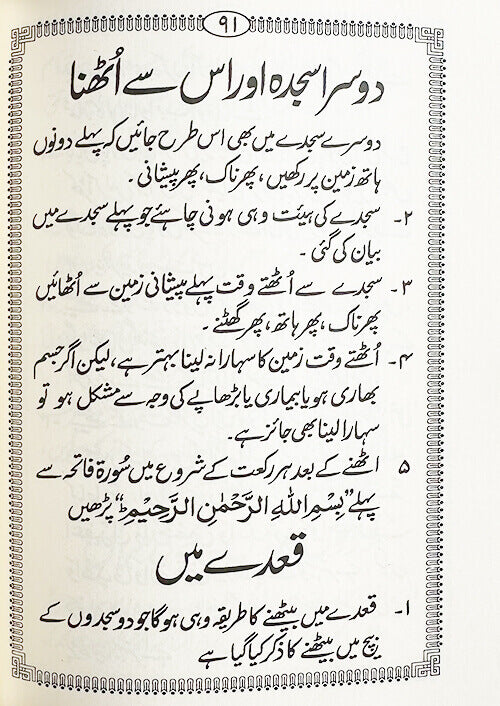 ۹۱
دوسرا سجدہ اور اس سے اُٹھنا
دوسرے سجدے میں بھی اس طرح جائیں کہ پہلے دونوں
ہاتھ زمین پر رکھیں، پھر ناک، پھر پیشانی۔
۲۔ سجدے کی ہیئت وہی ہونی چاہئے جو پہلے سجدے میں
بیان کی گئی۔
۳۔ سجدے سے اُٹھتے وقت پہلے پیشانی زمین سے اُٹھائیں
پھر ناک، پھر ہاتھ، پھر گھٹنے۔
۴۔ اُٹھتے وقت زمین کا سہارا نہ لینا بہتر ہے، لیکن اگر جسم
بھاری ہو یا بیماری یا بڑھاپے کی وجہ سے مشکل ہو تو
سہارا لینا بھی جائز ہے۔
۵ اٹھنے کے بعد ہر رکعت کے شروع میں سُورۃ فاتحہ سے
پہلے ”بِسْمِ اللهِ الرَّحْمٰنِ الرَّحِيْمِ“ پڑھیں
قعدے میں
۱۔ قعدے میں بیٹھنے کا طریقہ وہی ہوگا جو دو سجدوں کے
بیچ میں بیٹھنے کا ذکر کیا گیا ہے